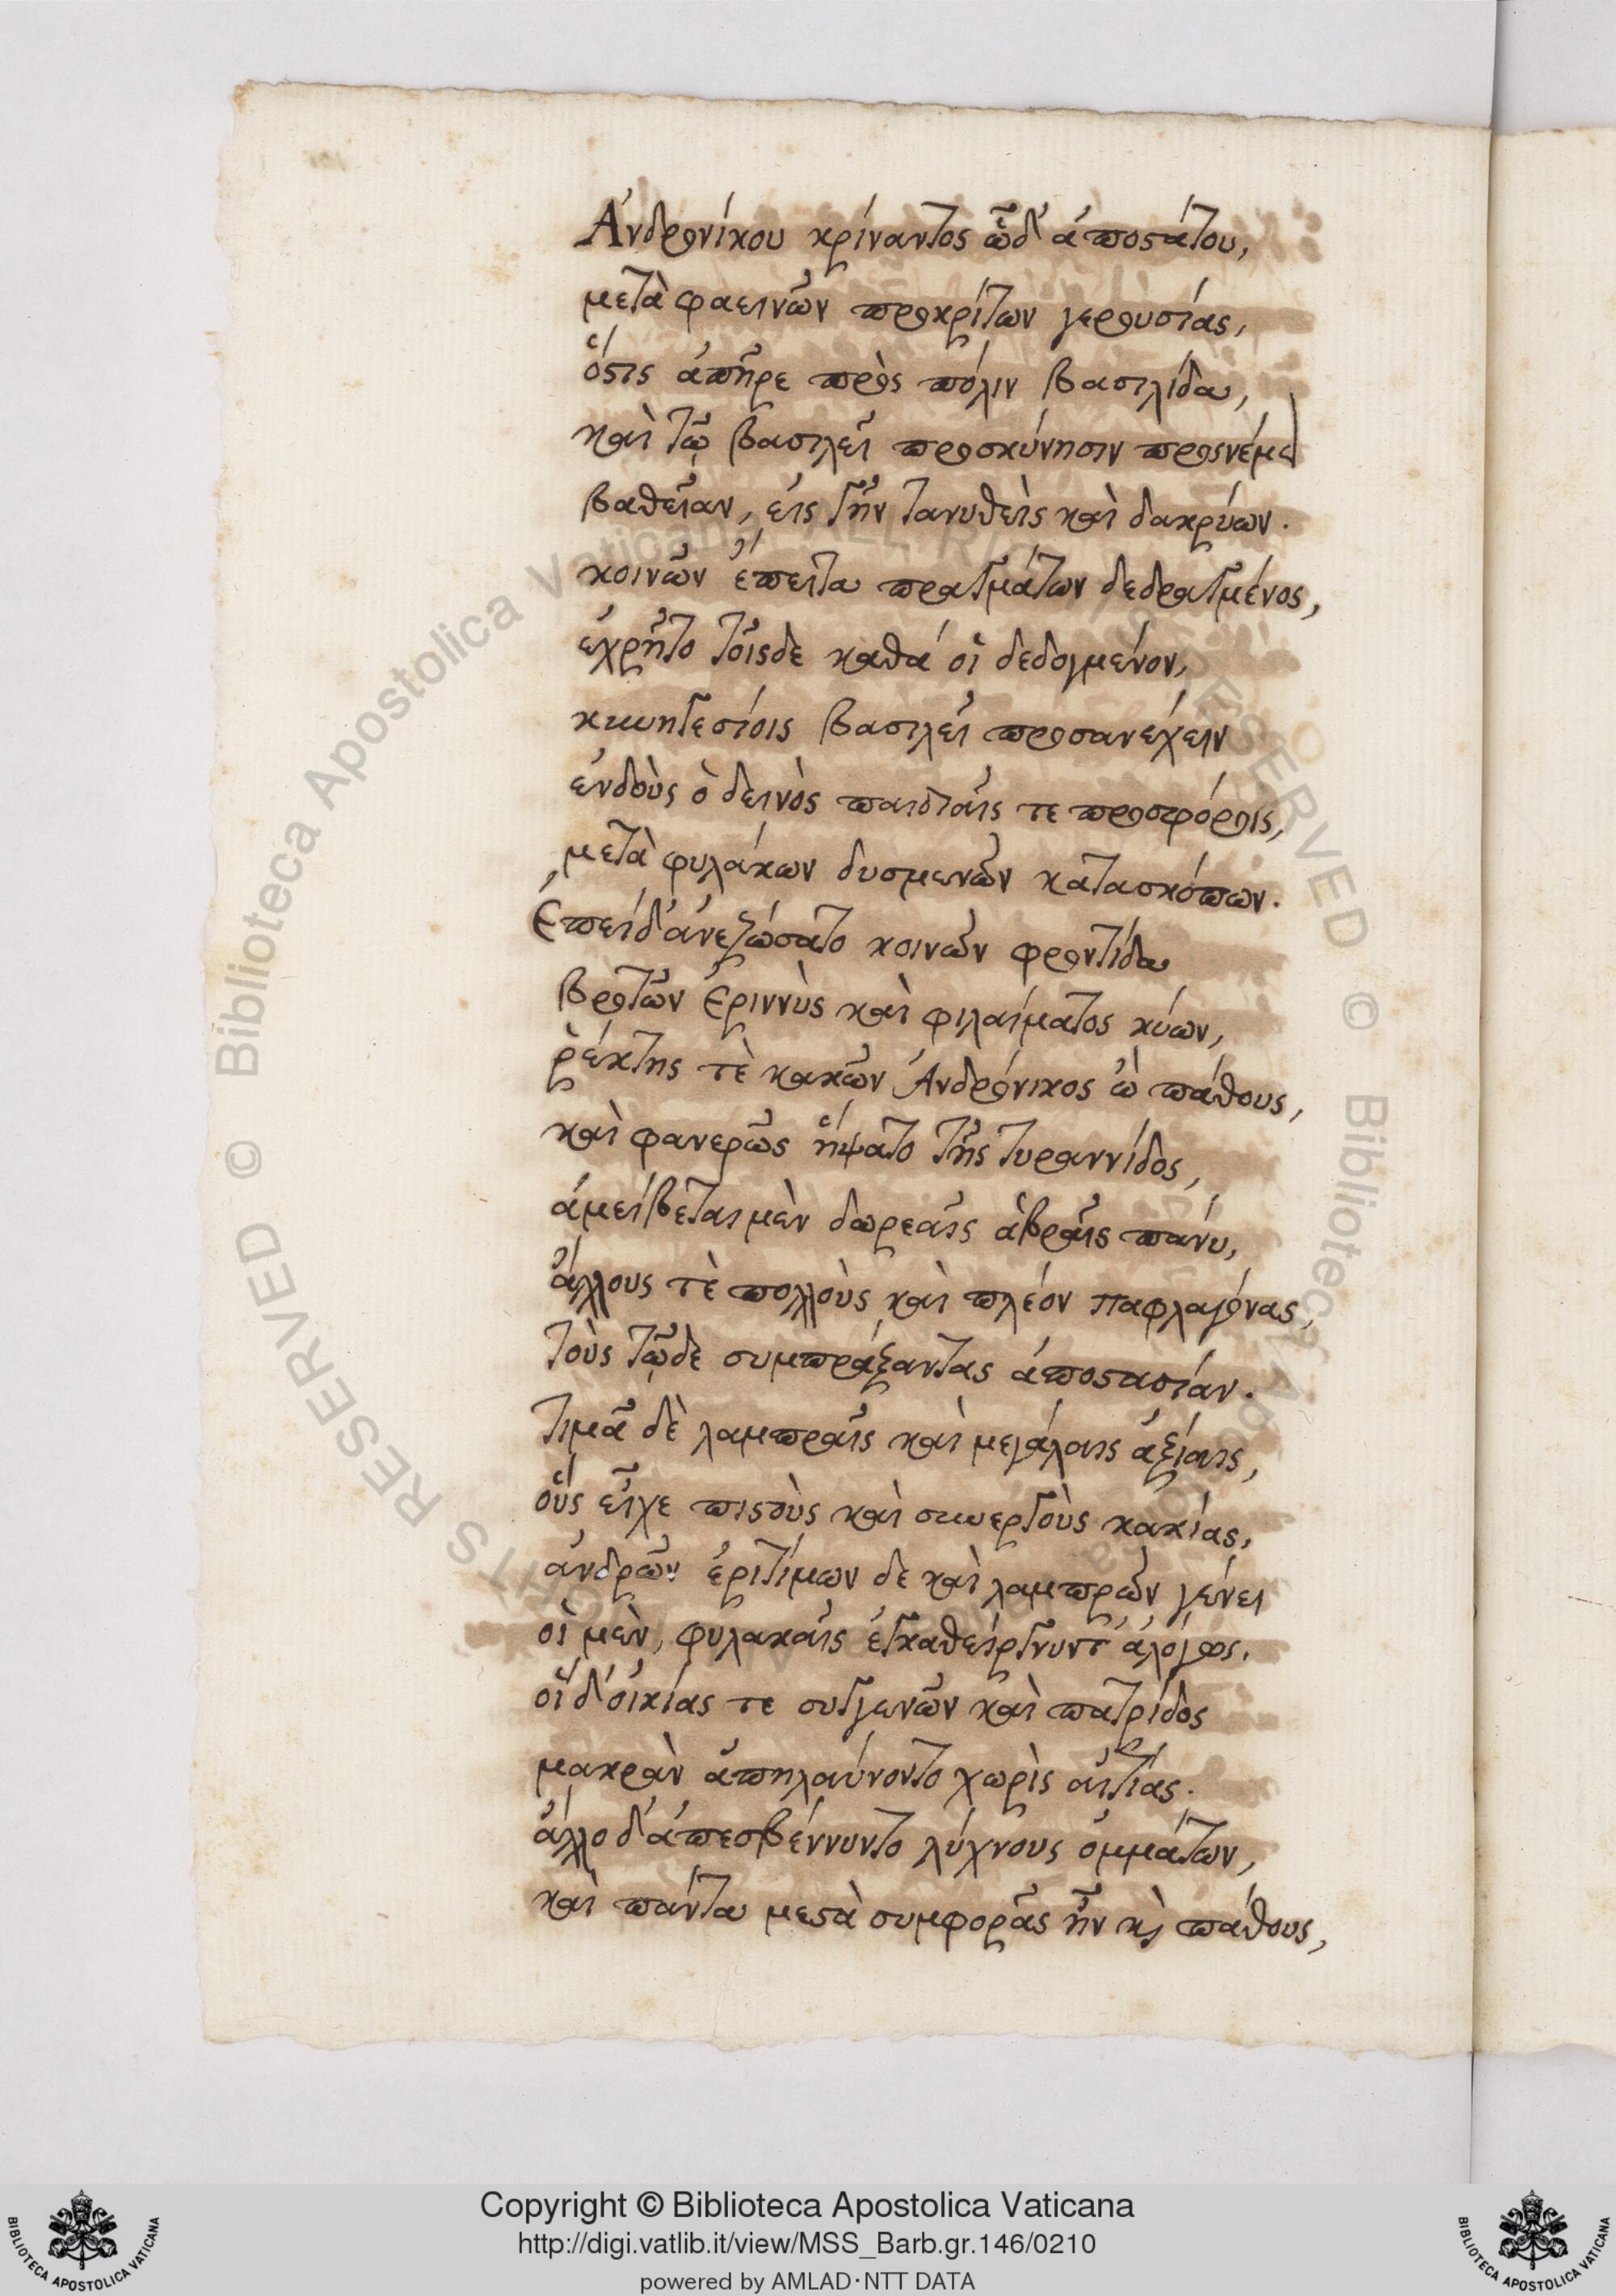 Ἀνδρονίκου κρίναντος ὧδ' ἀποστάτου,
μετὰ φαεινῶν προκρίτων γερουσίας,
ὅστις ἀπῆρε πρὸς πόλιν βασιλίδα,
καὶ τῷ βασιλεῖ προσκύνησιν προσνέμει
βαθεῖαν, εἰς γῆν τανυθεὶς καὶ δακρύων.
κοινῶν ἔπειτα πραγμάτων δεδραγμένος,
ἐχρῆτο τοῖσδε καθά οἱ δεδογμένον,
κυνηγεσίοις βασιλεῖ προσανέχειν
ἐνδοὺς ὁ δεινὸς παιδιαῖς τε προσφόροις,
μετὰ φυλάκων δυσμενῶν κατασκόπων.
Ἐπεὶ δ' ἀνεζώσατο κοινῶν φροντίδα
βροτῶν Ἐριννὺς καὶ φιλαίματος κύων,
ῥέκτης τὲ κακῶν Ἀνδρόνικος ὢ πάθους,
καὶ φανερῶς ἥψατο τῆς τυραννίδος,
ἀμείβεται μὲν δωρεαῖς ἁβραῖς πάνυ,
ἄλλους τὲ πολλοὺς καὶ πλέον παφλαγόνας,
τοὺς τῷδε συμπράξαντας ἀποστασίαν.
Τιμᾷ δὲ λαμπραῖς καὶ μεγάλαις ἀξίαις,
οὓς εἶχε πιστοὺς καὶ συνεργοὺς κακίας,
ἀνδρῶν ἐριτίμων δε καὶ λαμπρῶν γένει
οἱ μὲν, φυλακαῖς ἐγκαθείργνυντ' ἀλόγως,
οἳ δ' οἰκίας τε συγγενῶν καὶ πατρίδος
μακρὰν ἀπηλαύνοντο χωρὶς αἰτίας.
ἄλλο δ' ἀπεσβέννυντο λύχνους ὀμμάτων,
καὶ πάντα μεστὰ συμφορᾶς ἦν κὶ πάθους,
Copyright © Biblioteca Apostolica Vaticana
http://digi.vatlib.it/view/MSS_Barb.gr.146/0210
powered by AMLAD·NTT DATA